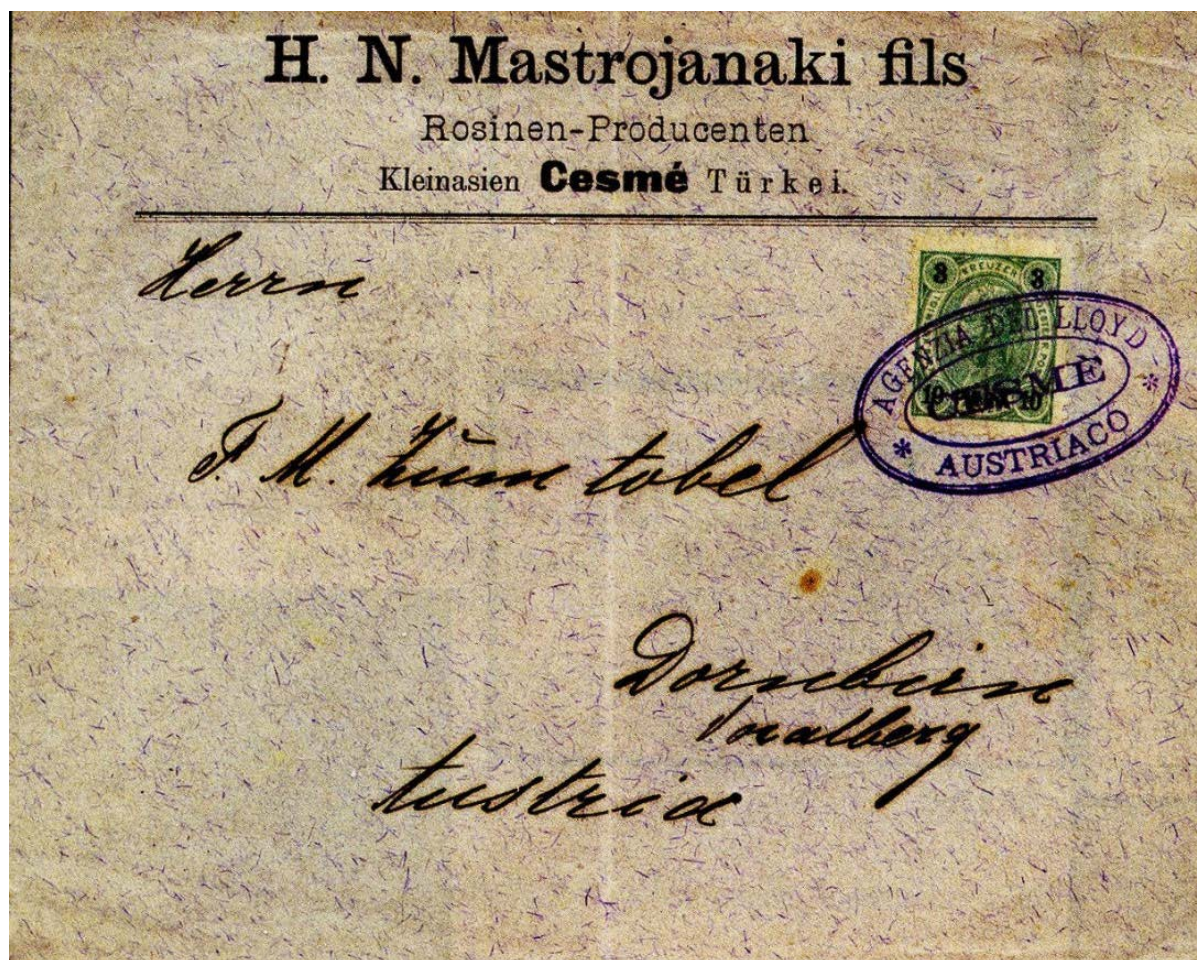 H. N. Mastrojanaki fils
Rosinen-Producenten
Kleinasien Cesmé Türkei.
Herrn
8 KREUZER 8
AGENZIA DEL LLOYD
CESMÈ
AUSTRIACO
F. M. Zum tobel
Dornbirn
Voralberg
Austria